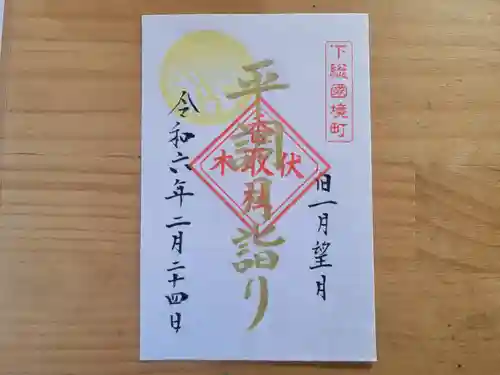 下総國境町
旧一月望月
平閏月詣り
香取
伏木
令和六年二月二十四日